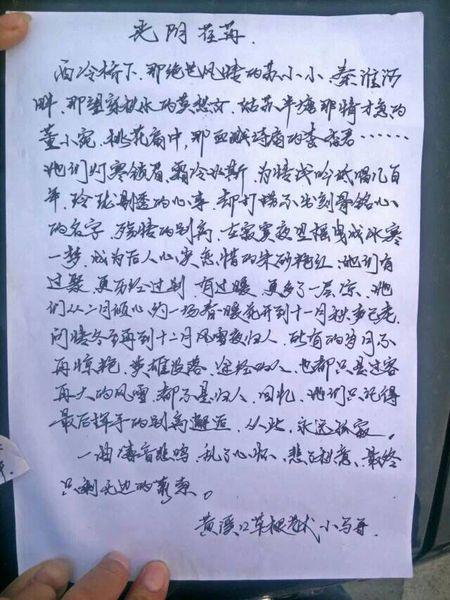 光阴荏苒
西冷桥下，那绝世风情的苏小小，秦淮河
畔，那望穿秋水的莫愁女，姑苏半塘那情才意的
董小宛，桃花扇中，那血溅诗扇的李香君……
她们灯寒锁眉，霜冷水斯，为情浅吟低唱几百
年，玲珑剔透的心事，却打捞不出刻骨铭心
的名字，残情的别离，在寂寞夜里摇曳成冰寒
一梦，成为后人心头悲情的朱砂艳红，她们有
过聚，更历经过别，有过暖，更多了一层凉，她
们从二月倾心约一场春暖花开到十一月秋声已老，
问情冬至再到十二月风雪夜归人，所有的当月不
再惊艳，梦雄没落，途经的人，也都只是过客
再大的风雪，都不是归人，回忆，她们只记得
最后挥手的别离邂逅，从此，永远孤寂。
一曲清音悲鸣，乱了心怀，悲了秋落，最终
只剩无边的萧索。
黄溪口草根 小马哥